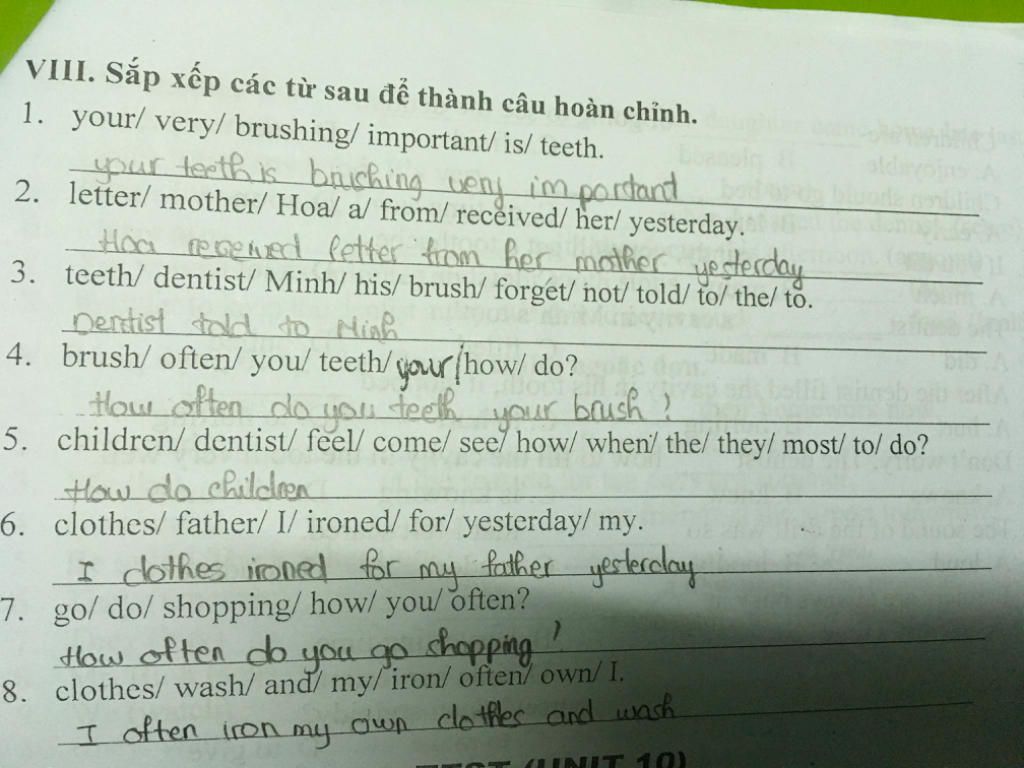 VIII. Sắp xếp các từ sau để thành câu hoàn chỉnh.
1. your/ very/ brushing/ important/ is/ teeth.
your teeth is brushing very important
2. letter/ mother/ Hoa/ a/ from/ received/ her/ yesterday.
Hoa received letter from her mother yesterday
3. teeth/ dentist/ Minh/ his/ brush/ forget/ not/ told/ to/ the/ to.
Dentist told to Minh
4. brush/ often/ you/ teeth/ your/ how/ do?
How often do you teeth your brush ?
5. children/ dentist/ feel/ come/ see/ how/ when/ the/ they/ most/ to/ do?
How do children
6. clothes/ father/ I/ ironed/ for/ yesterday/ my.
I clothes ironed for my father yesterday
7. go/ do/ shopping/ how/ you/ often?
How often do you go shopping ?
8. clothes/ wash/ and/ my/ iron/ often/ own/ I.
I often iron my own clothes and wash
TEST (UNIT 10)